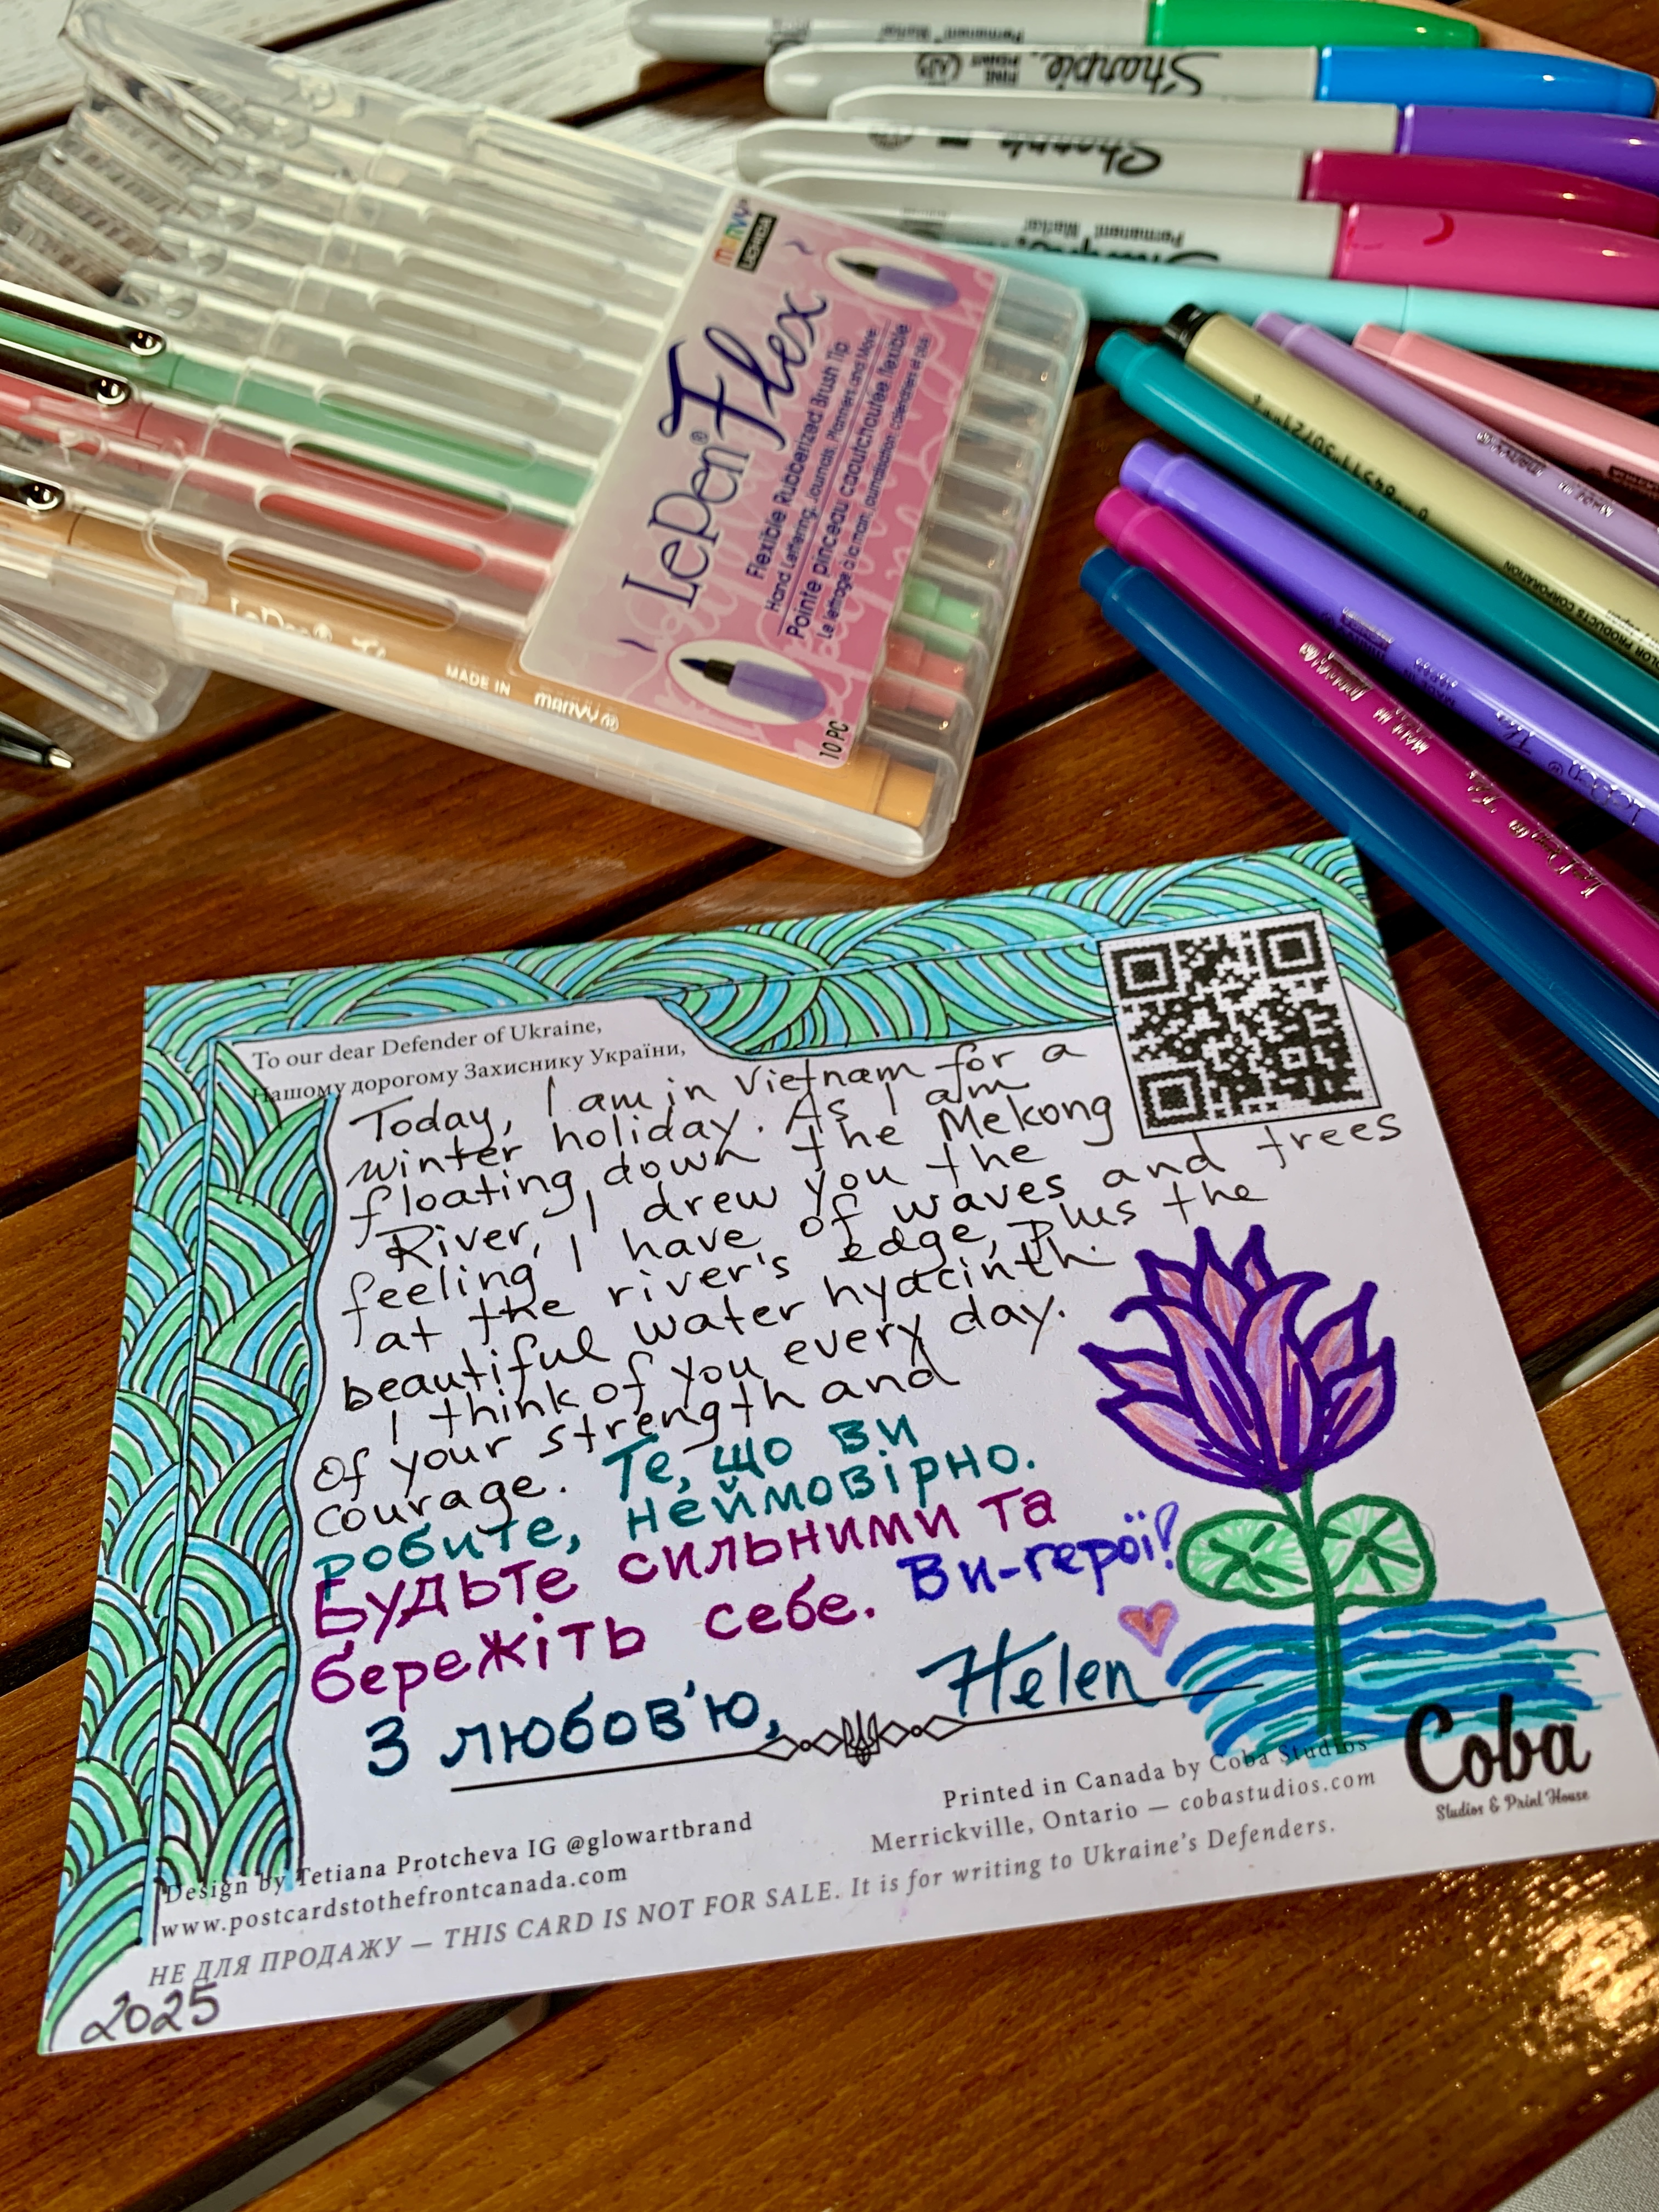 Permanent Marker
Sharpie
FINE POINT
Sharpie
Sharpie
Permanent Marker
marvy
UCHIDA
LePen® Flex
Flexible Rubberized Brush Tip
Hand Lettering, Journals, Planners and More
Pointe pinceau caoutchoutée flexible
Le lettrage à la main, journalisation, calendriers et plus
10 PC
MADE IN
marvy
To our dear Defender of Ukraine,
Нашому дорогому Захиснику України,
Today, I am in Vietnam for a
winter holiday. As I am
floating down the Mekong
River, I drew you the
feeling I have of waves and trees
at the river's edge, plus the
beautiful water hyacinth.
I think of you every day.
Of your strength and
courage. Те, що ви
робите, неймовірно.
Будьте сильними та
бережіть себе. Ви-герої!
З любов'ю, Helen
Design by Tetiana Protcheva IG @glowartbrand
www.postcardstothefrontcanada.com
Printed in Canada by Coba Studios
Merrickville, Ontario — cobastudios.com
НЕ ДЛЯ ПРОДАЖУ — THIS CARD IS NOT FOR SALE. It is for writing to Ukraine's Defenders.
Coba
Studios & Print House
2025